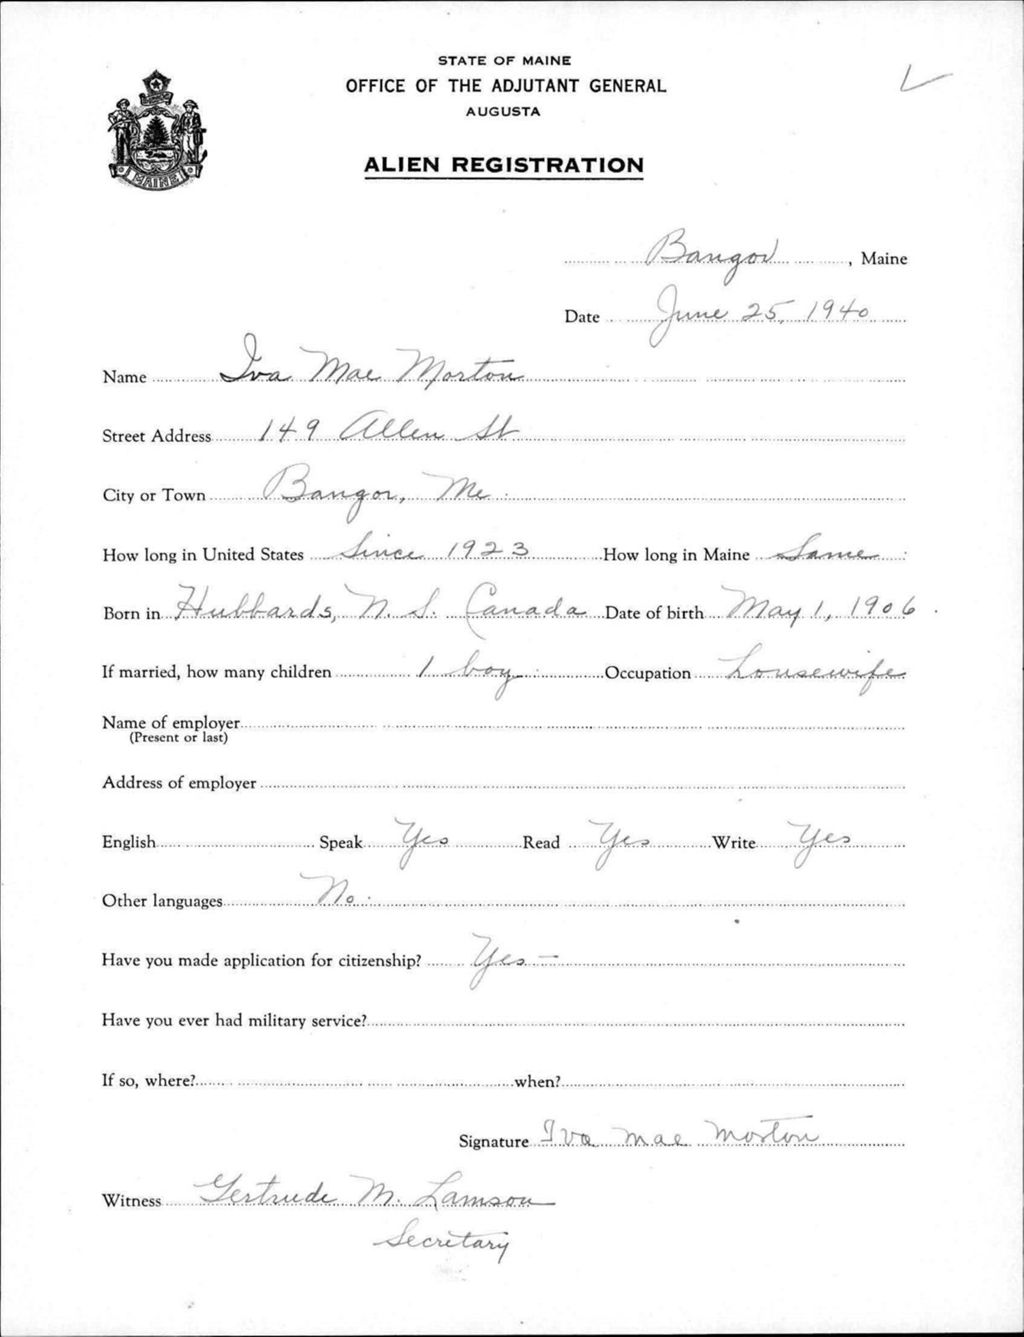 STATE OF MAINE
OFFICE OF THE ADJUTANT GENERAL
AUGUSTA
ALIEN REGISTRATION
MAINE
Bangor, Maine
Date June 25, 1940
Name Iva Mae Morton
Street Address 149 Allen St
City or Town Bangor, Me.
How long in United States Since 1923 How long in Maine Same
Born in Hubbards, N. S. Canada Date of birth May 1, 1906.
If married, how many children 1 boy. Occupation housewife
Name of employer
(Present or last)
Address of employer
English Speak Yes Read Yes Write Yes
Other languages No.
Have you made application for citizenship? Yes —
Have you ever had military service?
If so, where? when?
Signature Iva Mae Morton
Witness Gertrude M. Lamson
Secretary